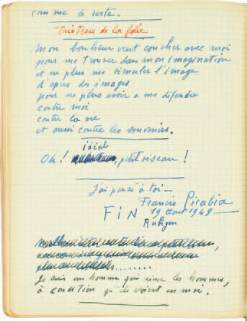 comme le reste.
Tristesse de la folie
mon bonheur veut coucher avec moi
pour me trouver dans mon imagination
et ne plus me stimuler d'image
d'après des images
pour ne plus avoir à me défendre
contre moi
contre la vie
et aussi contre les souvenirs.
Oh! petit oiseau!
J'ai pensé à toi
Francis Picabia
FIN 19 août 1948
Rubigen
Je suis un homme qui aime les hommes,
à condition qu'ils soient en moi.